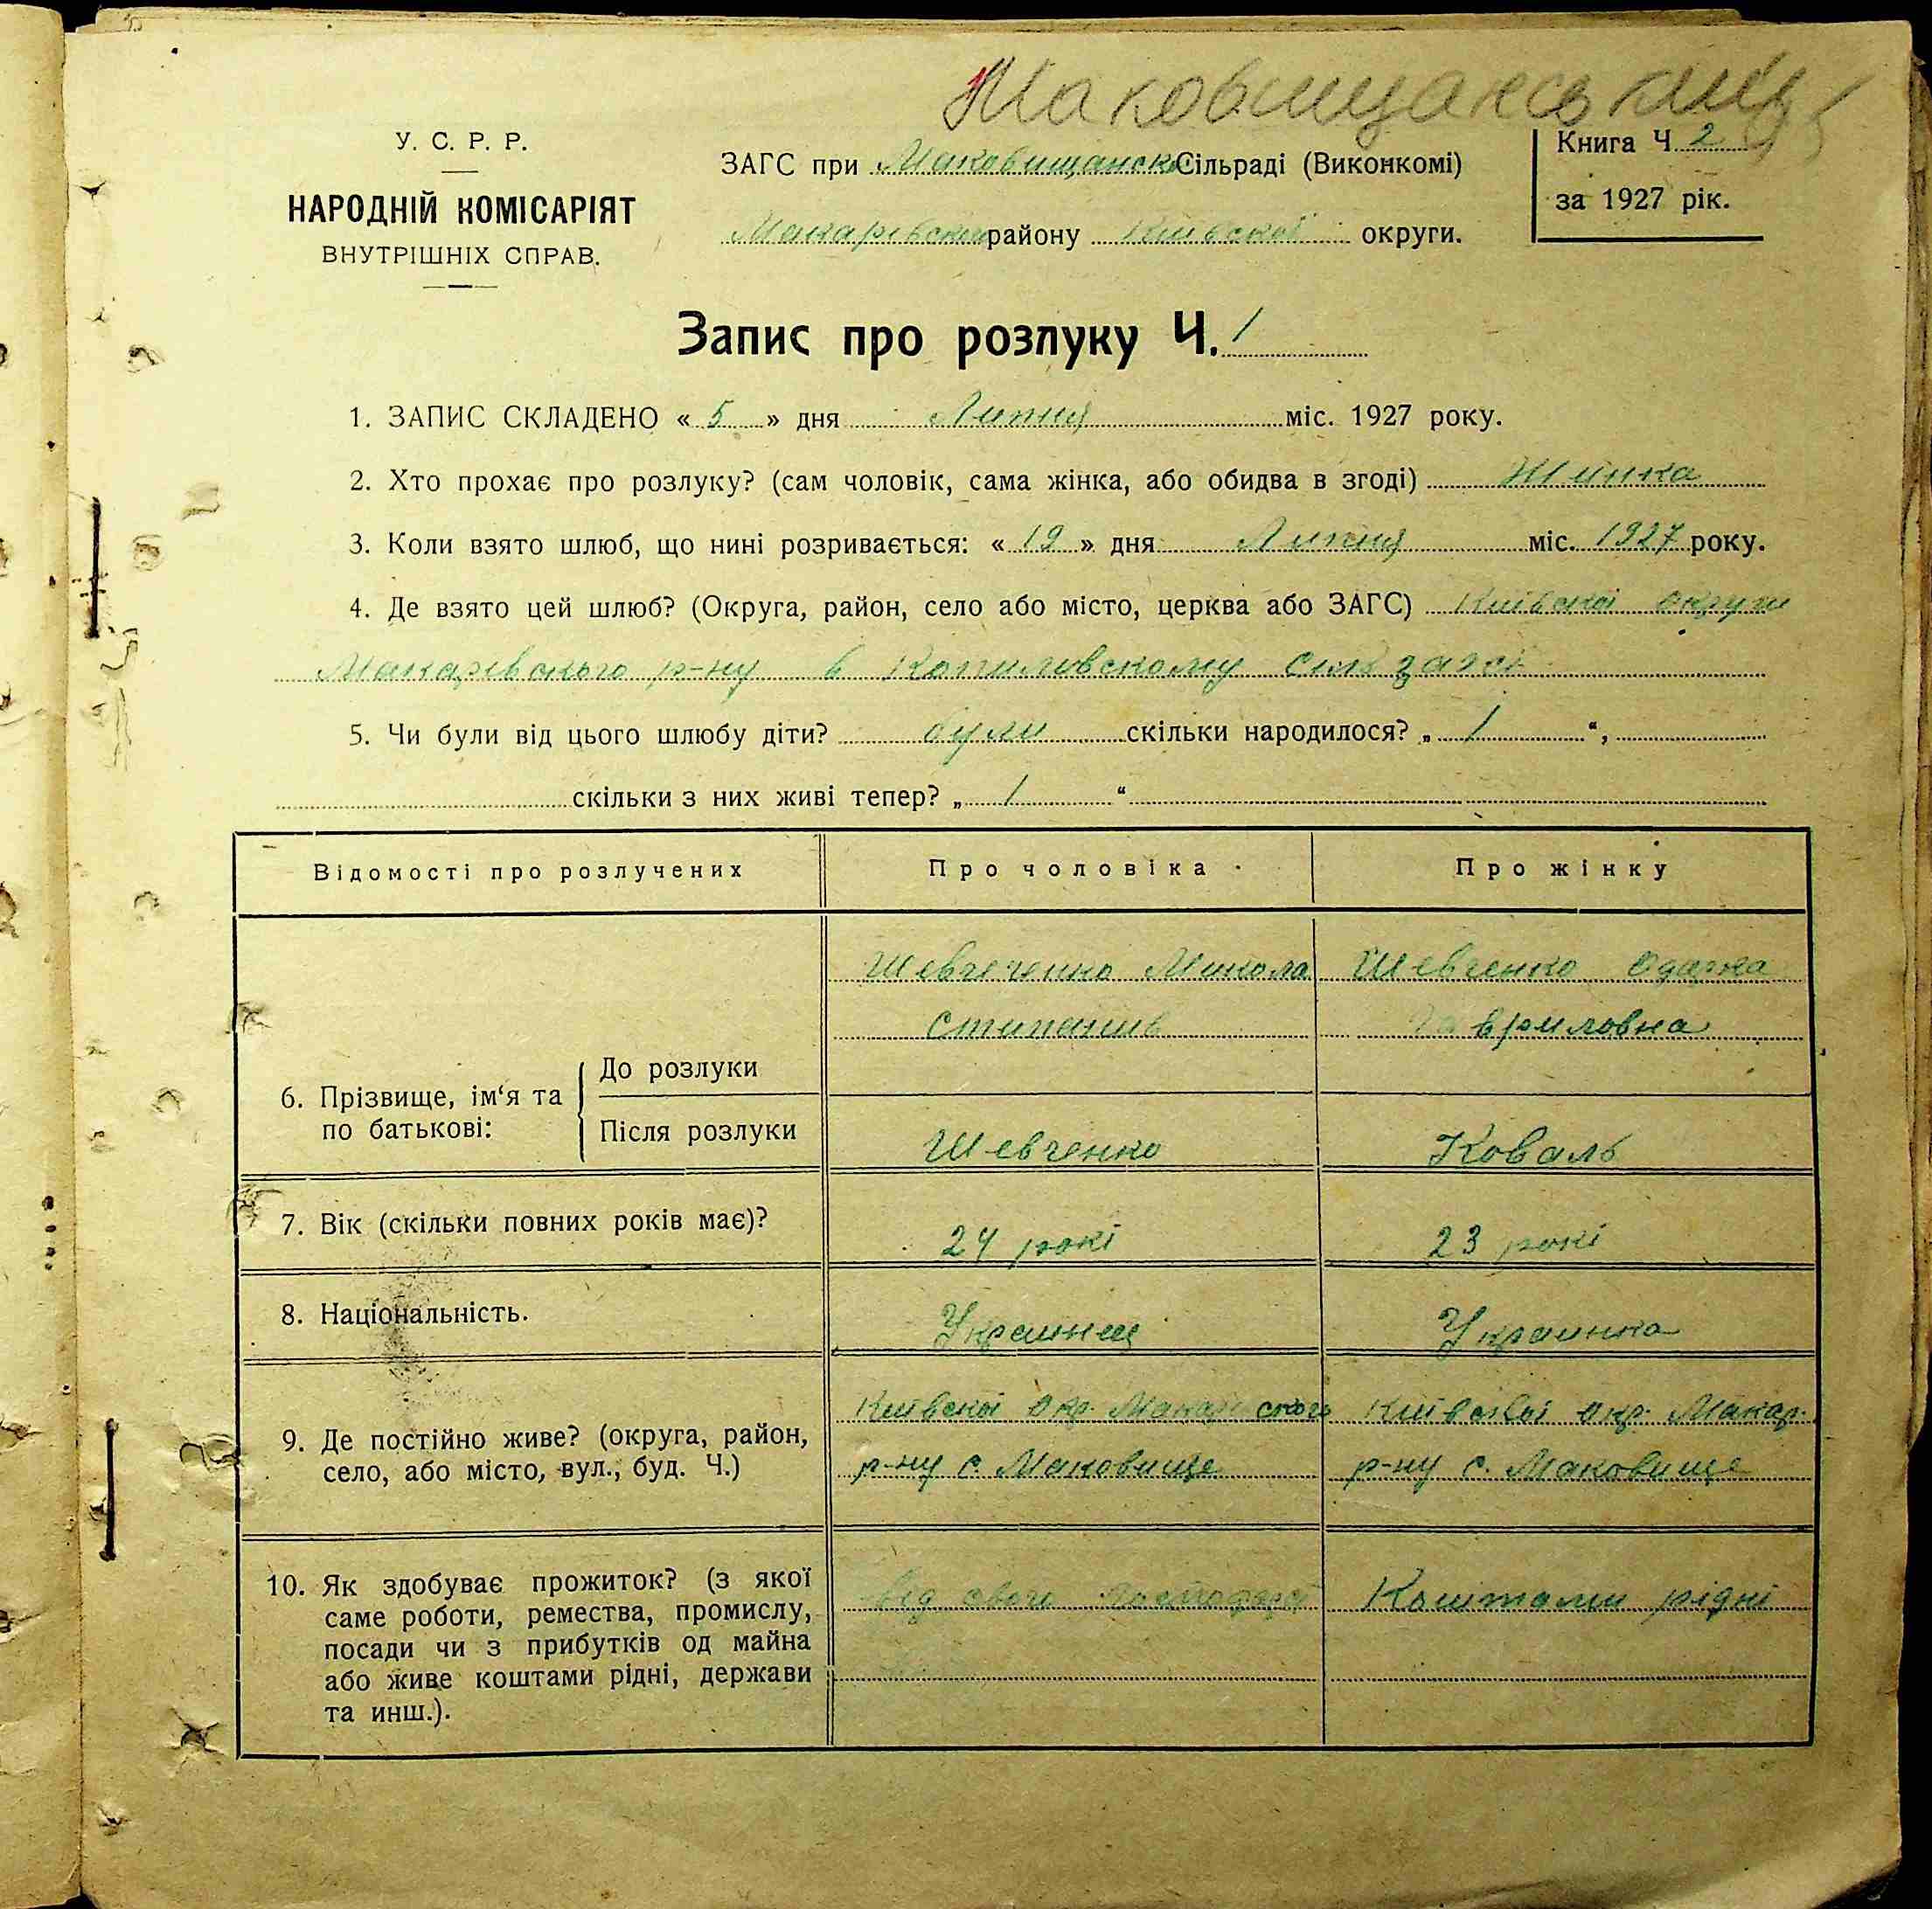 Маковищанський
У. С. Р. Р.
НАРОДНІЙ КОМІСАРІЯТ
ВНУТРІШНІХ СПРАВ.
ЗАГС при Маковищанск Сільраді (Виконкомі)
Макарівской району Київскої округи.
Книга Ч 2
за 1927 рік.
Запис про розлуку Ч. 1
1. ЗАПИС СКЛАДЕНО « 5 » дня Липня міс. 1927 року.
2. Хто прохає про розлуку? (сам чоловік, сама жінка, або обидва в згоді) Жинка
3. Коли взято шлюб, що нині розривається: « 19 » дня Липня міс. 1927 року.
4. Де взято цей шлюб? (Округа, район, село або місто, церква або ЗАГС) Київскої округи
Макарівського р-ну в Копиловскому Сільзагсі
5. Чи були від цього шлюбу діти? були скільки народилося? „ 1 “,
скільки з них живі тепер? „ 1 “
Відомості про розлучених
Про чоловіка
Про жінку
6. Прізвище, ім‘я та по батькові:
До розлуки
Шевчеченко Микола
Степанив
Шевченко Одарка
Гавриловна
Після розлуки
Шевченко
Коваль
7. Вік (скільки повних років має)?
24 рокі
23 рокі
8. Національність.
Украинец
Украинка
9. Де постійно живе? (округа, район,
село, або місто, вул., буд. Ч.)
Київскої окр. Макарівского
р-ну с. Маковище
Київскої окр. Макар.
р-ну с. Маковище
10. Як здобуває прожиток? (з якої
саме роботи, ремества, промислу,
посади чи з прибутків од майна
або живе коштами рідні, держави
та инш.).
Від свого господарс
Коштами рідні